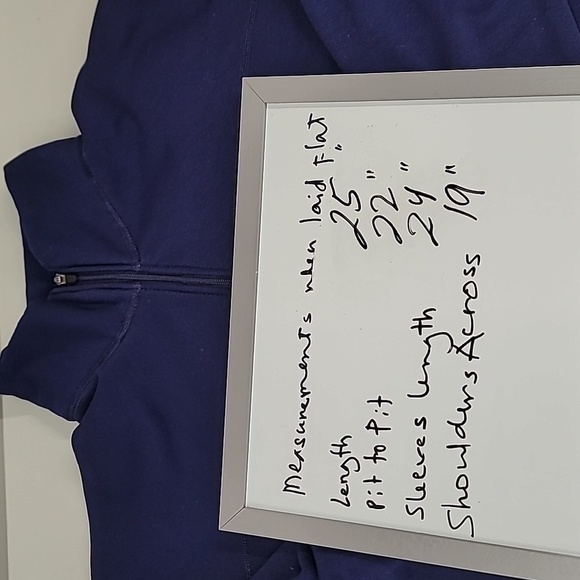 Measurements when laid flat
Length 25"
Pit to Pit 22"
Sleeves length 24"
Shoulders Across 19"